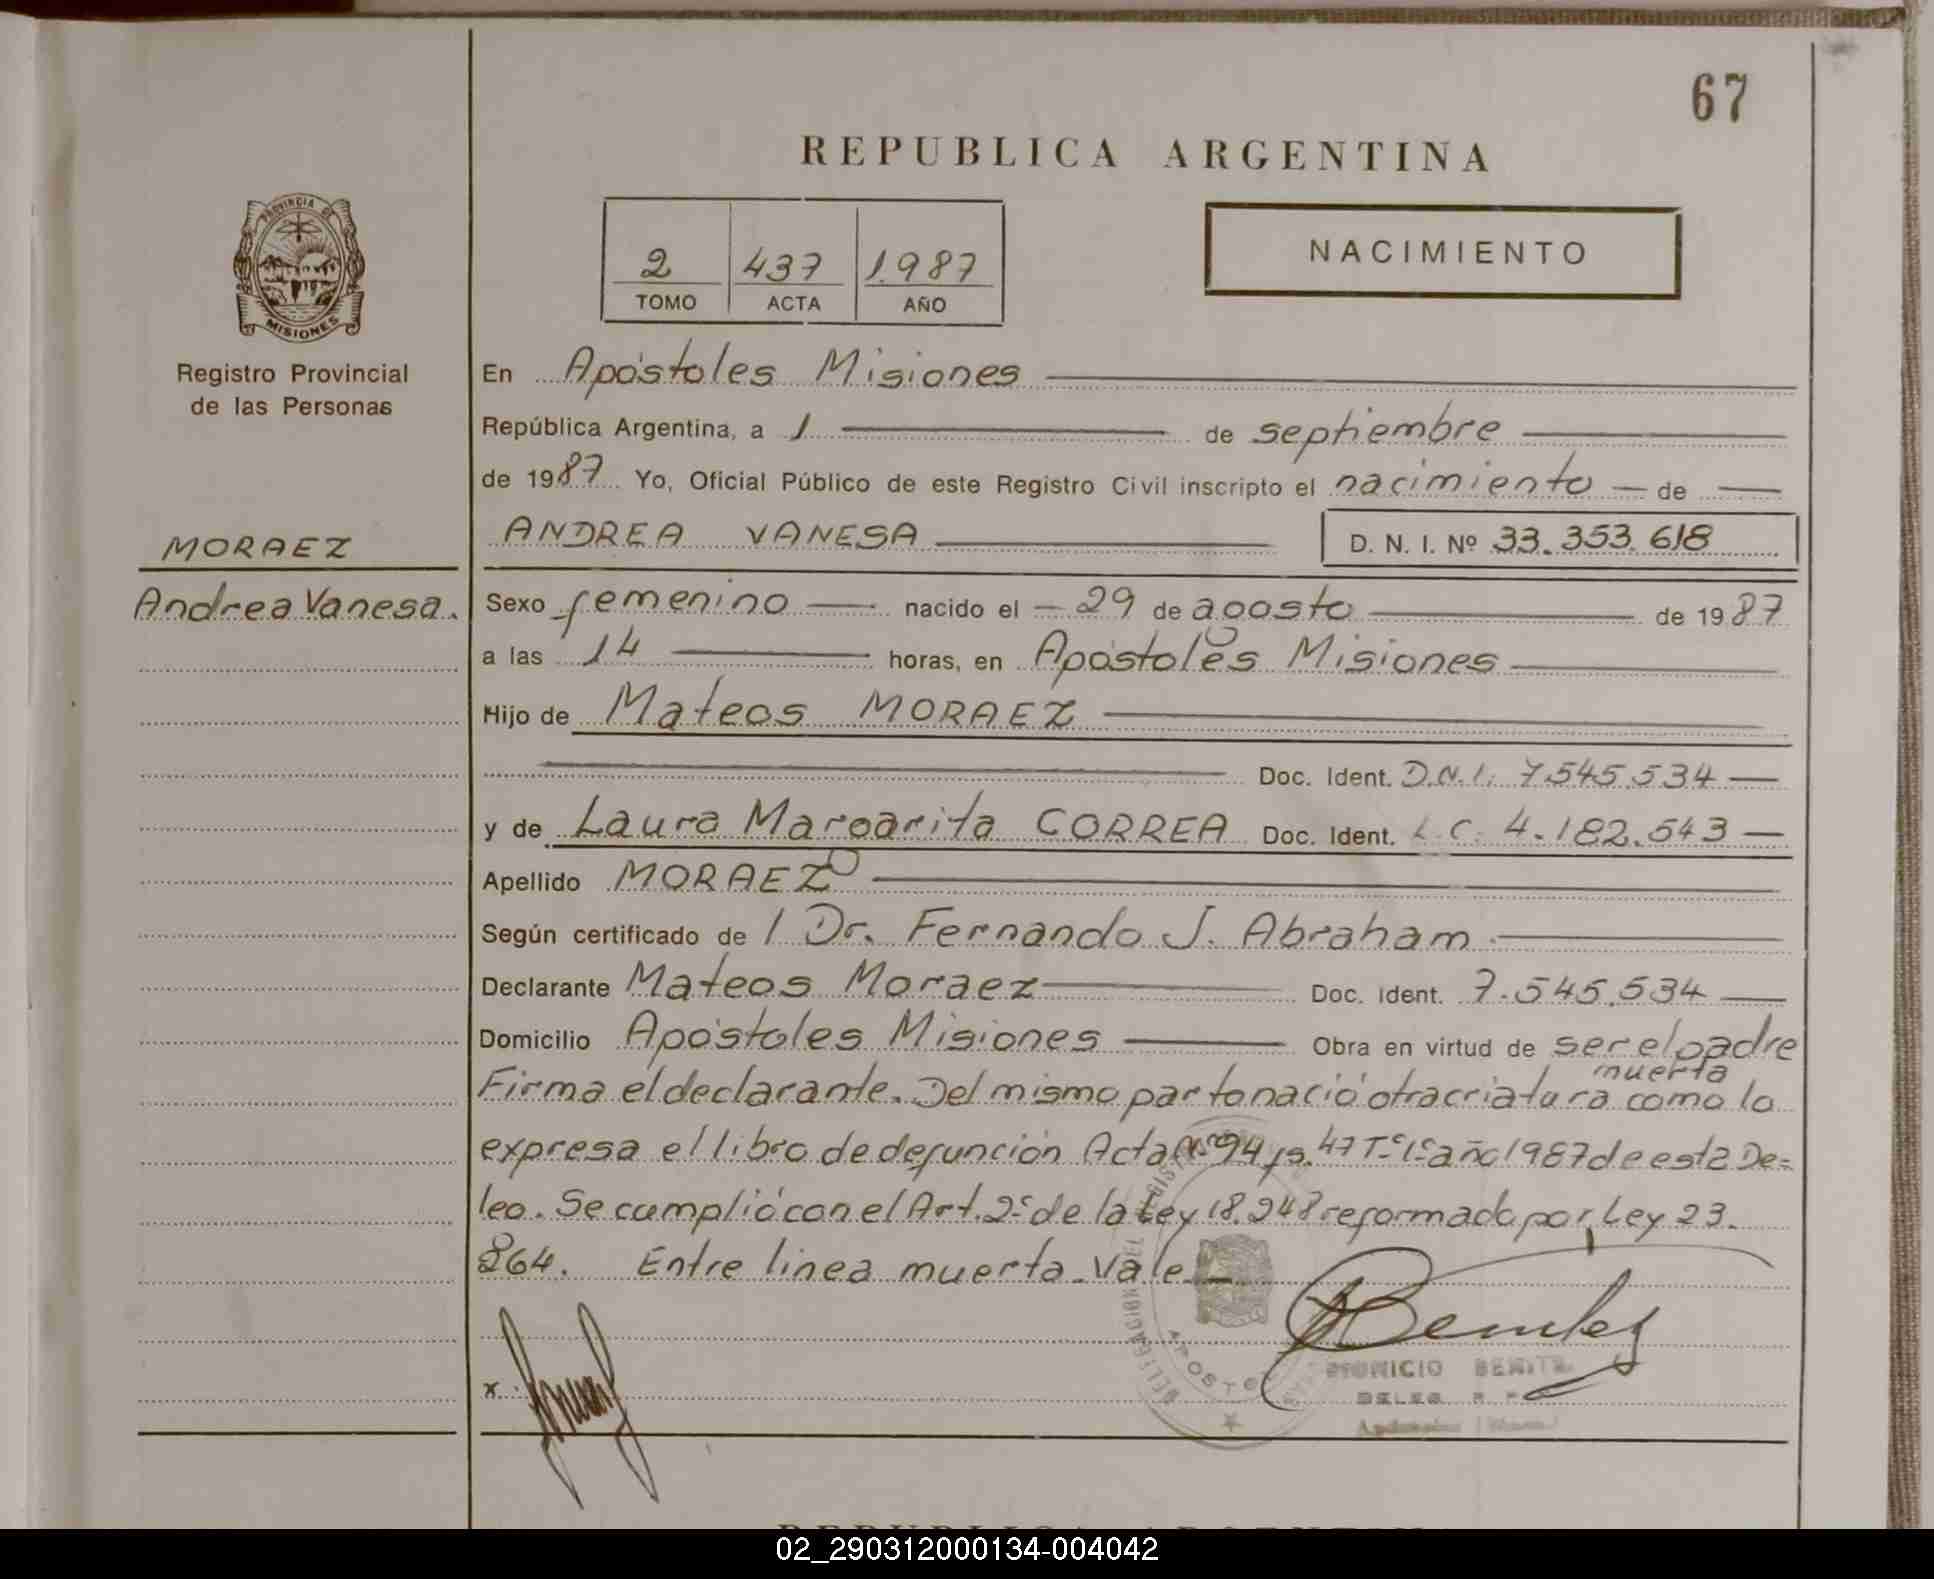 67
REPUBLICA ARGENTINA
PROVINCIA DE
MISIONES
Registro Provincial
de las Personas
2 437 1.987
TOMO ACTA AÑO
NACIMIENTO
En Apóstoles Misiones
República Argentina, a 1 de septiembre
de 1987 Yo, Oficial Público de este Registro Civil inscripto el nacimiento de
MORAEZ
ANDREA VANESA D. N. I. Nº 33.353.618
Andrea Vanesa.
Sexo femenino nacido el 29 de agosto de 1987
a las 14 horas, en Apóstoles Misiones
Hijo de Mateos MORAEZ
Doc. Ident. D.N.I. 7.545.534
y de Laura Margarita CORREA Doc. Ident. L.C. 4.182.543
Apellido MORAEZ
Según certificado de 1 Dr. Fernando J. Abraham
Declarante Mateos Moraez Doc. Ident. 7.545.534
Domicilio Apóstoles Misiones Obra en virtud de ser el padre
muerta
Firma el declarante. Del mismo parto nació otra criatura como lo
expresa el libro de defunción Acta Nº 94 fs. 47 Tº 1º año 1987 de esta De=
leg. Se cumplió con el Art. 2º de la Ley 18.248 reformado por Ley 23.
264. Entre linea muerta. Vale
x
DELEGACION DEL
APOSTOLES
DIONICIO BENITEZ
DELEG. R. P.
REPUBLICA ARGENTINA
02_290312000134-004042